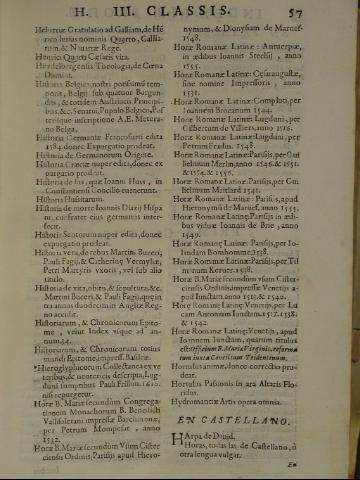 H. III. CLASSIS. 57
Helvetiæ Gratulatio ad Galliam, de Hē
rico huius nominis Quarto, Gallia-
rum & Nauarræ Rege.
Henrici Quarti Cæsaris vita.
Heydelbergensis Theologia, de Cœna
Domini.
Historia Belgica, nostri potissimū tem-
poris, Belgij sub quatuor Burgun-
dis, & totidem Austriacis Principi-
bus, &c. Senatui, Populo Belgico, Po
steriique inscriptione A.E. Metera-
no Belga.
Historia Germaniæ Francofurti edita
1584. donec Expurgatio prodeat.
Historia de Germanorum Origine.
Historia Græciæ nuper edita, donec ex
purgatio prodeat.
Historia de his, quæ Ioanni Huss, in
Constantiensi Concilio euenerunt.
Historia Hussitarum.
Historia de morte Ioannis Diazij Hispa
ni, cus frater eius germanus inter-
fecit.
Historia Scotorum nuper edita, donec
expurgatio prodeat.
Historia vera, de rebus Martini Buceri,
Pauli Fagij, & Catherinę Vermyliæ,
Petri Martyris vxoris, vel sub alio
titulo.
Historia de vita, obitu, & sepultura, &c.
Martini Buceri, & Pauli Fagij, quę in
tra annos duodecim in Angliæ Reg-
no accidit.
Historiarum, & Chronicorum Epito-
me, velut Index vsque ad an-
num 34.
Historiarum, & Chronicorum totius
mundi Epitome, impress. Basileæ.
*Hieroglyphicorum Collectanea ex ve
teribus, & neotericis descripta, Lug-
duni sumptibus Pauli Frillon. 1610.
nisi repurgetur.
Horæ B. Mariæ secundùm Congrega-
tionem Monachorum B. Benedicti
Vallisoletani impressæ Barchinonæ,
per Petrum Mompesat, anno
1532.
Horæ B. Mariæ secundùm Vsum Cister
ciensis Ordinis, Parisijs apud Hiero-
nymum, & Dionysium de Marnef.
1548.
Horæ Romanæ Latinæ: Antuerpiæ,
in ædibus Ioannis Steelsij, anno
1555.
Horæ Romanæ Latinæ: Cęsaraugustæ,
sine nomine Impressoris, anno
1531.
Horæ Romanæ Latinæ: Compluti, per
Ioannem Brocarium 1544.
Horæ Romanæ Latinæ: Lugduni, per
Gilbertum de Villiers, anno 1516.
Horæ Romanæ Latinæ: Lugduni, per
Petrum Fradin. 1548.
Horæ Romanæ Latinæ: Parisijs, per Gui
lielmum Merlin, anno 1546. & 1551.
& 1554. & 1556.
Horæ Romanæ Latinæ: Parisijs, per Gui
lielmum Maillard 1541.
Horæ Romanæ Latinæ: Parisijs, apud
Hieronymū de Marnef, anno 1555.
Horæ Romanę Latinę: Parisijs in ædi-
bus viduæ Ioannis de Brie, anno
1549.
Horæ Romanę Latinæ: Parisijs, per Io-
landam Bonhomme. 1538.
Horæ Romanæ Latinæ: Parisijs, per Til
manum Keruer. 1538.
Horæ B. Mariæ secundùm vsum Cister-
ciensis Ordinis, impressæ Venetijs a-
pud Iunctam, anno 1513. & 1540.
Horę Romanę Latinæ: Venetijs, per Lu
cam Antonium Iunctam. 1517. 1538.
& 1542.
Horæ Romanæ Latinę: Venetijs, apud
Ioannem Iunctam, quarum titulus
est: Officium B. Mariæ Virginis, reforma
tum iuxta Concilium Tridentinum.
Hortulus animæ, donec correctio pro-
deat.
Hortulus Passionis in ara Altaris Flo-
ridus.
Hydromantiæ Artis opera omnia.
EN CASTELLANO.
HArpa de Dauid.
Horas, todas las de Castellano, ò
otra lengua vulgar.
En